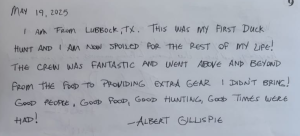 9
MAY 19, 2025
I AM FROM LUBBOCK, TX. THIS WAS MY FIRST DUCK
HUNT AND I AM NOW SPOILED FOR THE REST OF MY LIFE!
THE CREW WAS FANTASTIC AND WENT ABOVE AND BEYOND
FROM THE FOOD TO PROVIDING EXTRA GEAR I DIDN'T BRING!
GOOD PEOPLE, GOOD FOOD, GOOD HUNTING, GOOD TIMES WERE
HAD!
—ALBERT GILLISPIE